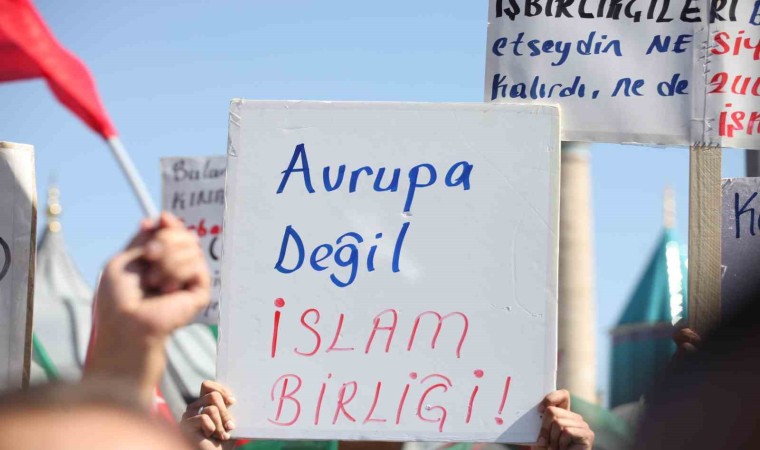 Avrupa
Değil
İSLAM
BİRLİĞİ!
İŞBİRLİKÇİLERİ
etseydin NE
Kalırdı, ne de